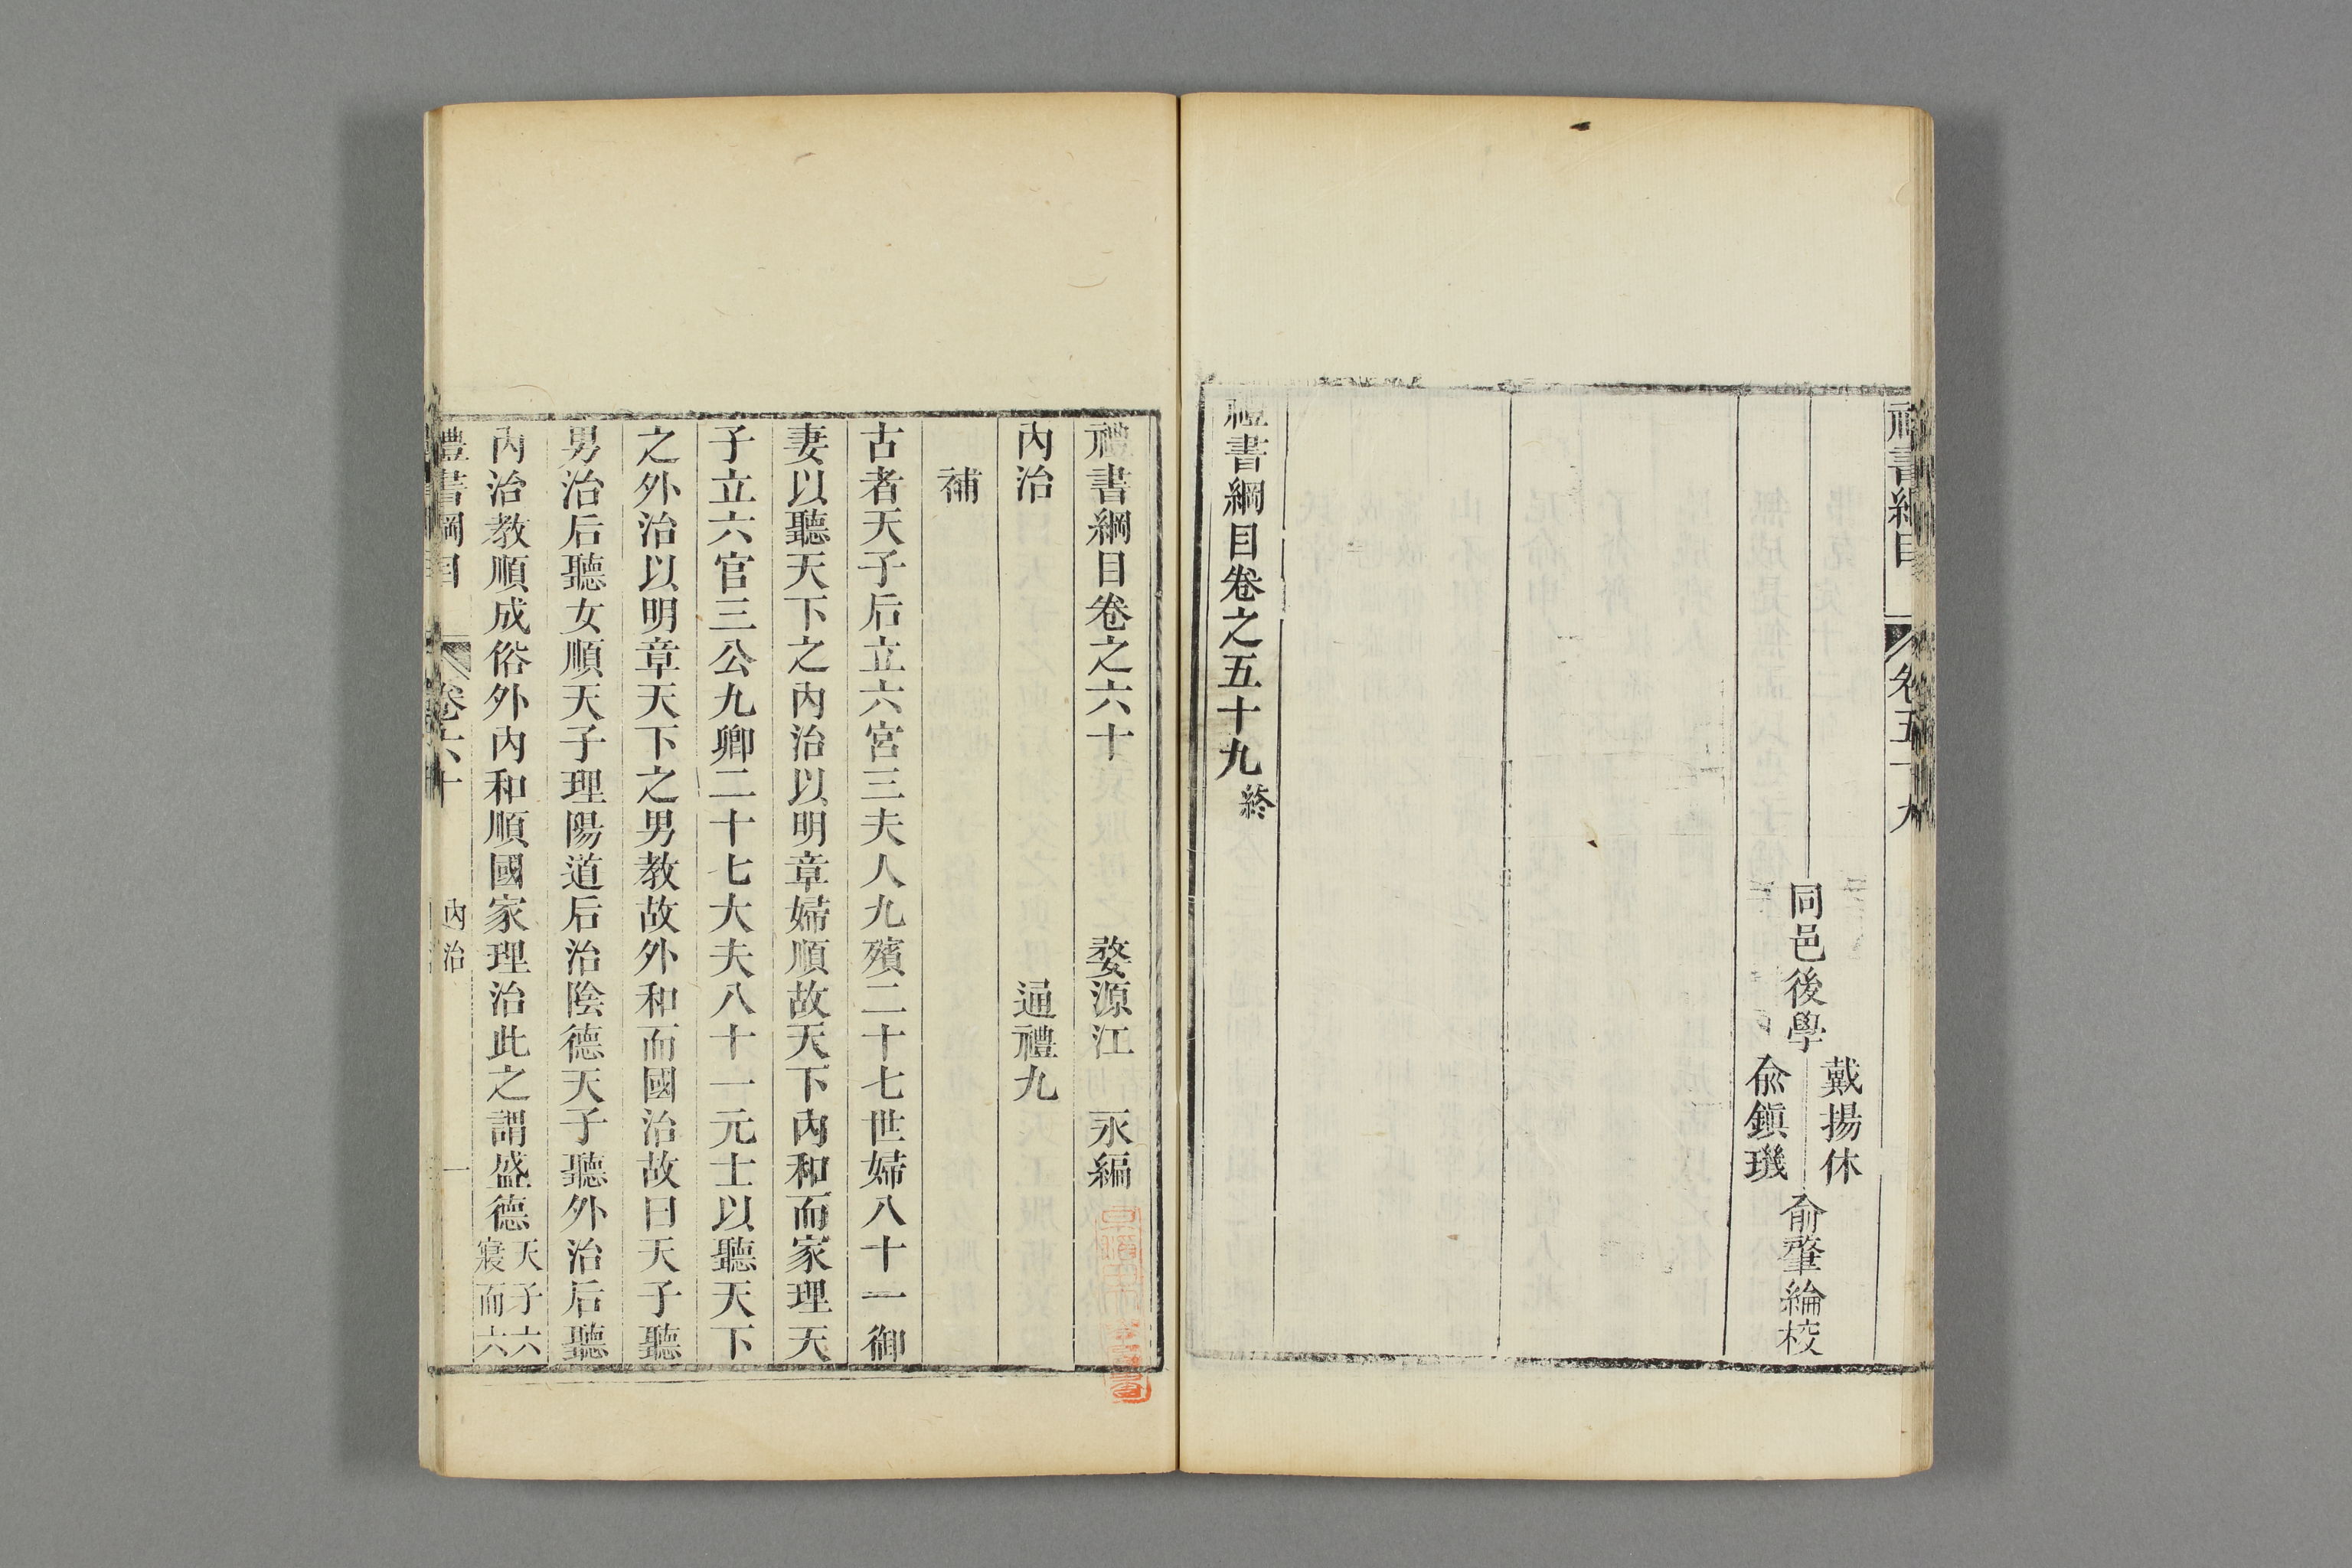 禮書綱目
卷五十九
同邑後學
戴揚休
俞鎮璣
俞肇綸校
禮書綱目卷之五十九終
禮書綱目卷之六十
婺源江永編
內治
通禮九
補
古者天子后立六宮三夫人九殯二十七世婦八十一御
妻以聽天下之內治以明章婦順故天下內和而家理天
子立六官三公九卿二十七大夫八十一元士以聽天下
之外治以明章天下之男教故外和而國治故曰天子聽
男治后聽女順天子理陽道后治陰德天子聽外治后聽
內治教順成俗外內和順國家理治此之謂盛德
天子六
寢而六
禮書綱目
卷六十
內治
一